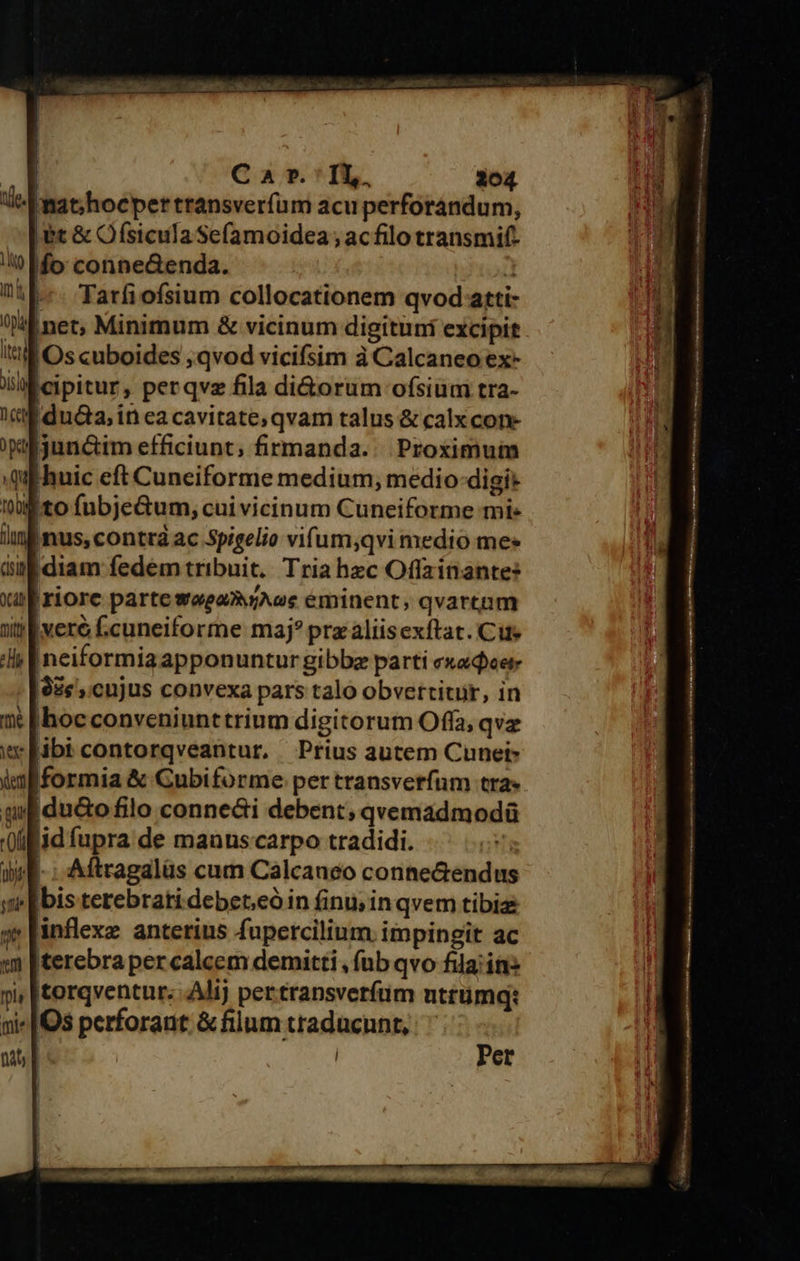 CAP. II. 204
nat, hoc per transversum acu perforandum,
ut & Ofsicula Sesamoidea, ac filo transmiſ-
ſo connectenda.
Tarſi oſsium collocationem qvod atti-
net, Minimum & vicinum digitum excipit
Os cuboides, qvod viciſsim à Calcaneo ex-
cipitur, per qvæ fila dictorum oſsium tra-
ducta, in ea cavitate, qvam talus & calx con-
junctim efficiunt, firmanda. Proximum
huic eſt Cuneiforme medium, medio digi-
to ſubjectum, cui vicinum Cuneiforme mi-
nus, contrà ac Spigelio viſum, qvi medio me-
diam ſedem tribuit. Tria hæc Oſſa in ante-
riore parte παραλλήλως eminent, qvartum
verò ſ. cuneiforme maj⁹ præ aliis exſtat. Cu-
neiformia apponuntur gibbæ parti σκαφοει-
δοῦς, cujus convexa pars talo obvertitur, in
hoc conveniunt trium digitorum Oſſa, qvæ
ibi contorqveantur. Prius autem Cunei-
formia & Cubiforme per transverſum tra-
ducto filo connecti debent, qvemadmodū
id ſupra de manus carpo tradidi.
Aſtragalus cum Calcaneo connectendus
bis terebrari debet, eò in ſinu, in qvem tibiæ
inflexæ anterius ſupercilium impingit ac
terebra per calcem demitti, ſub qvo fila in-
torqventur. Alij per transverſum utrumq;
Os perforant & filum traducunt,
Per